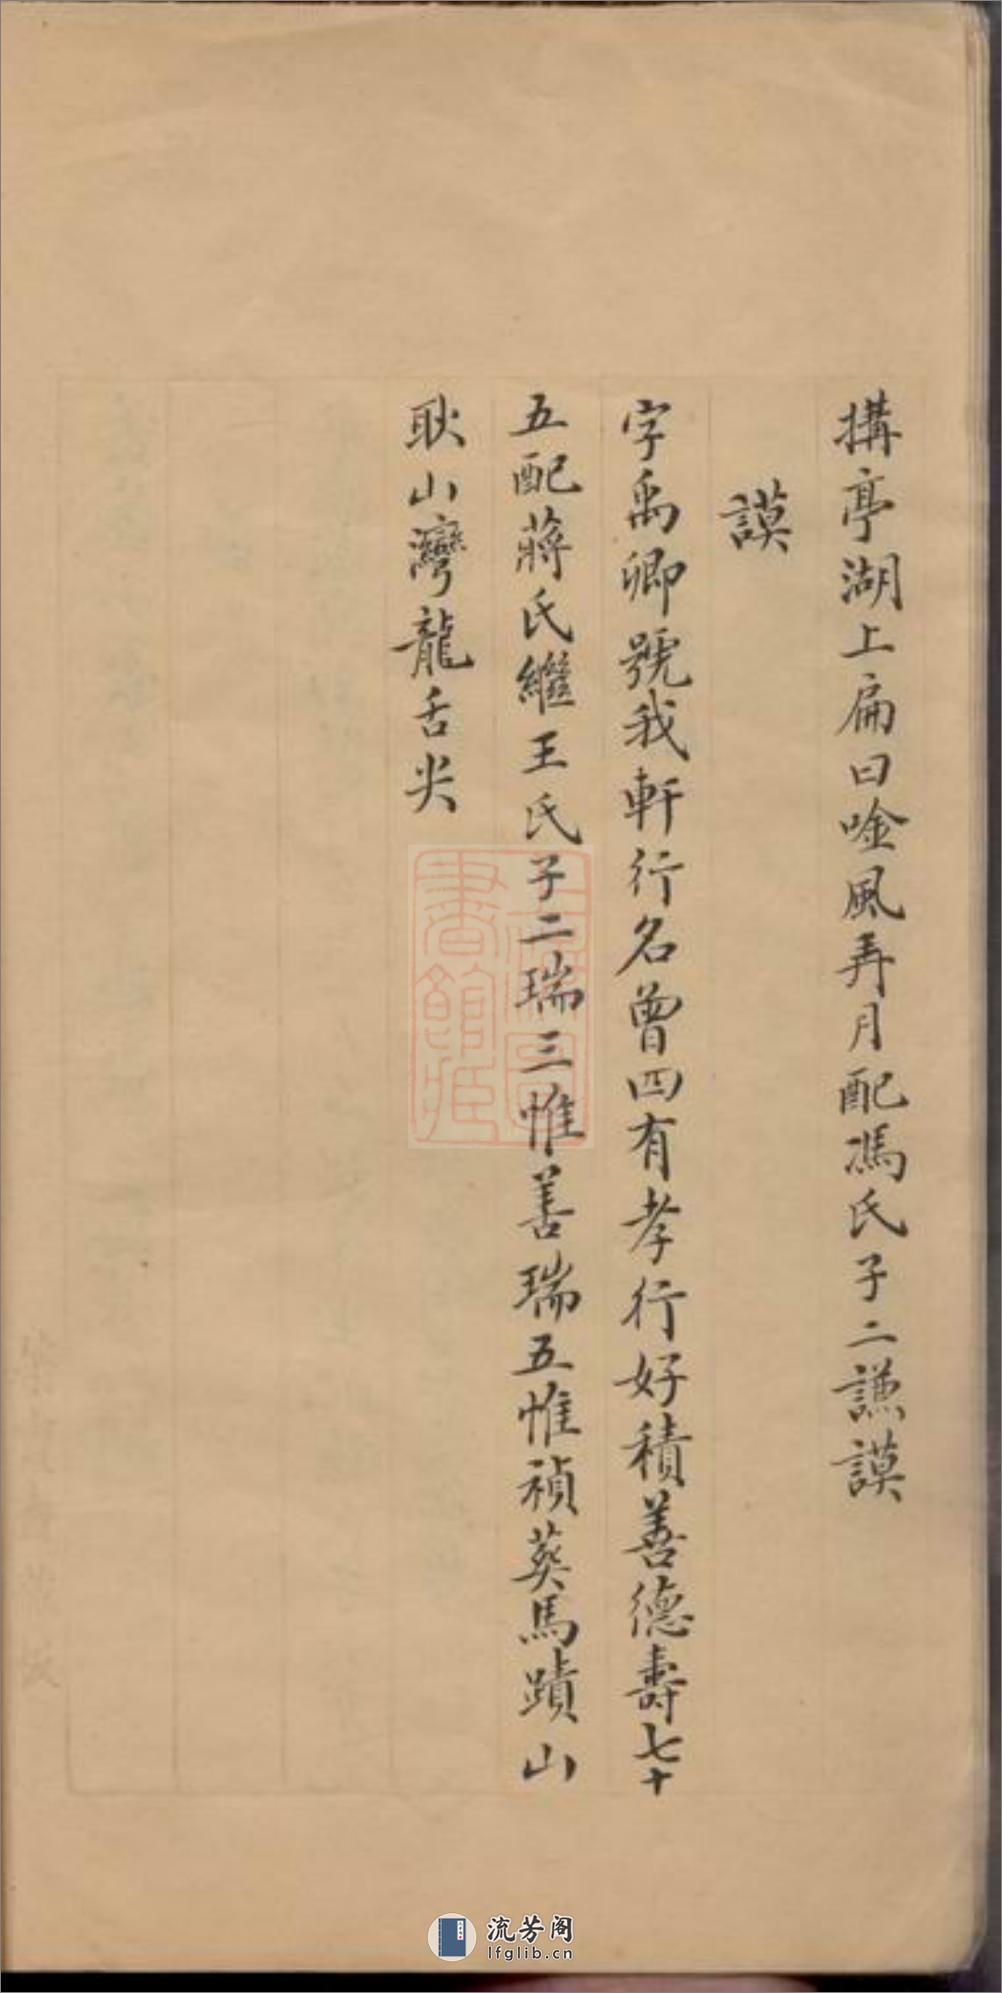 搆亭湖上扁曰唫風弄月配馮氏子二謙謨
謨
字禹卿號我軒行名曾四有孝行好積善德壽七十
五配蔣氏繼王氏子二瑞三惟善瑞五惟禎葵馬蹟山
耿山灣龍舌尖
流芳阁
lfglib.cn